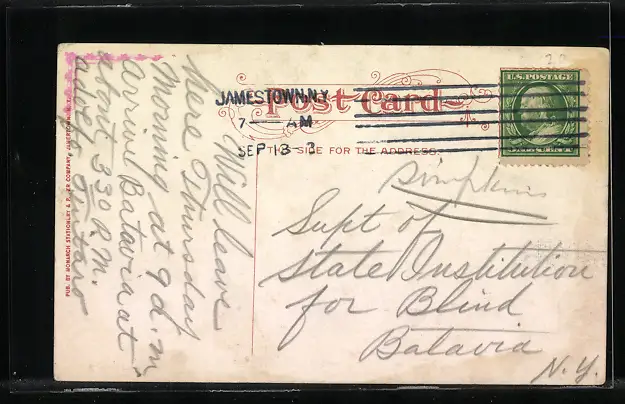 Post Card
JAMESTOWN, N.Y.
7 — AM
SEP 13 3
THIS SIDE FOR THE ADDRESS.
U.S. POSTAGE
Simpkins
Supt of
State Institution
for Blind
Batavia
N.Y.
Will leave
here Thursday
Morning at 9 a.m.
arrive Batavia at
about 3 30 P.M.
PUB. BY MONARCH STATIONERY & PAPER COMPANY, JAMESTOWN, N.Y.